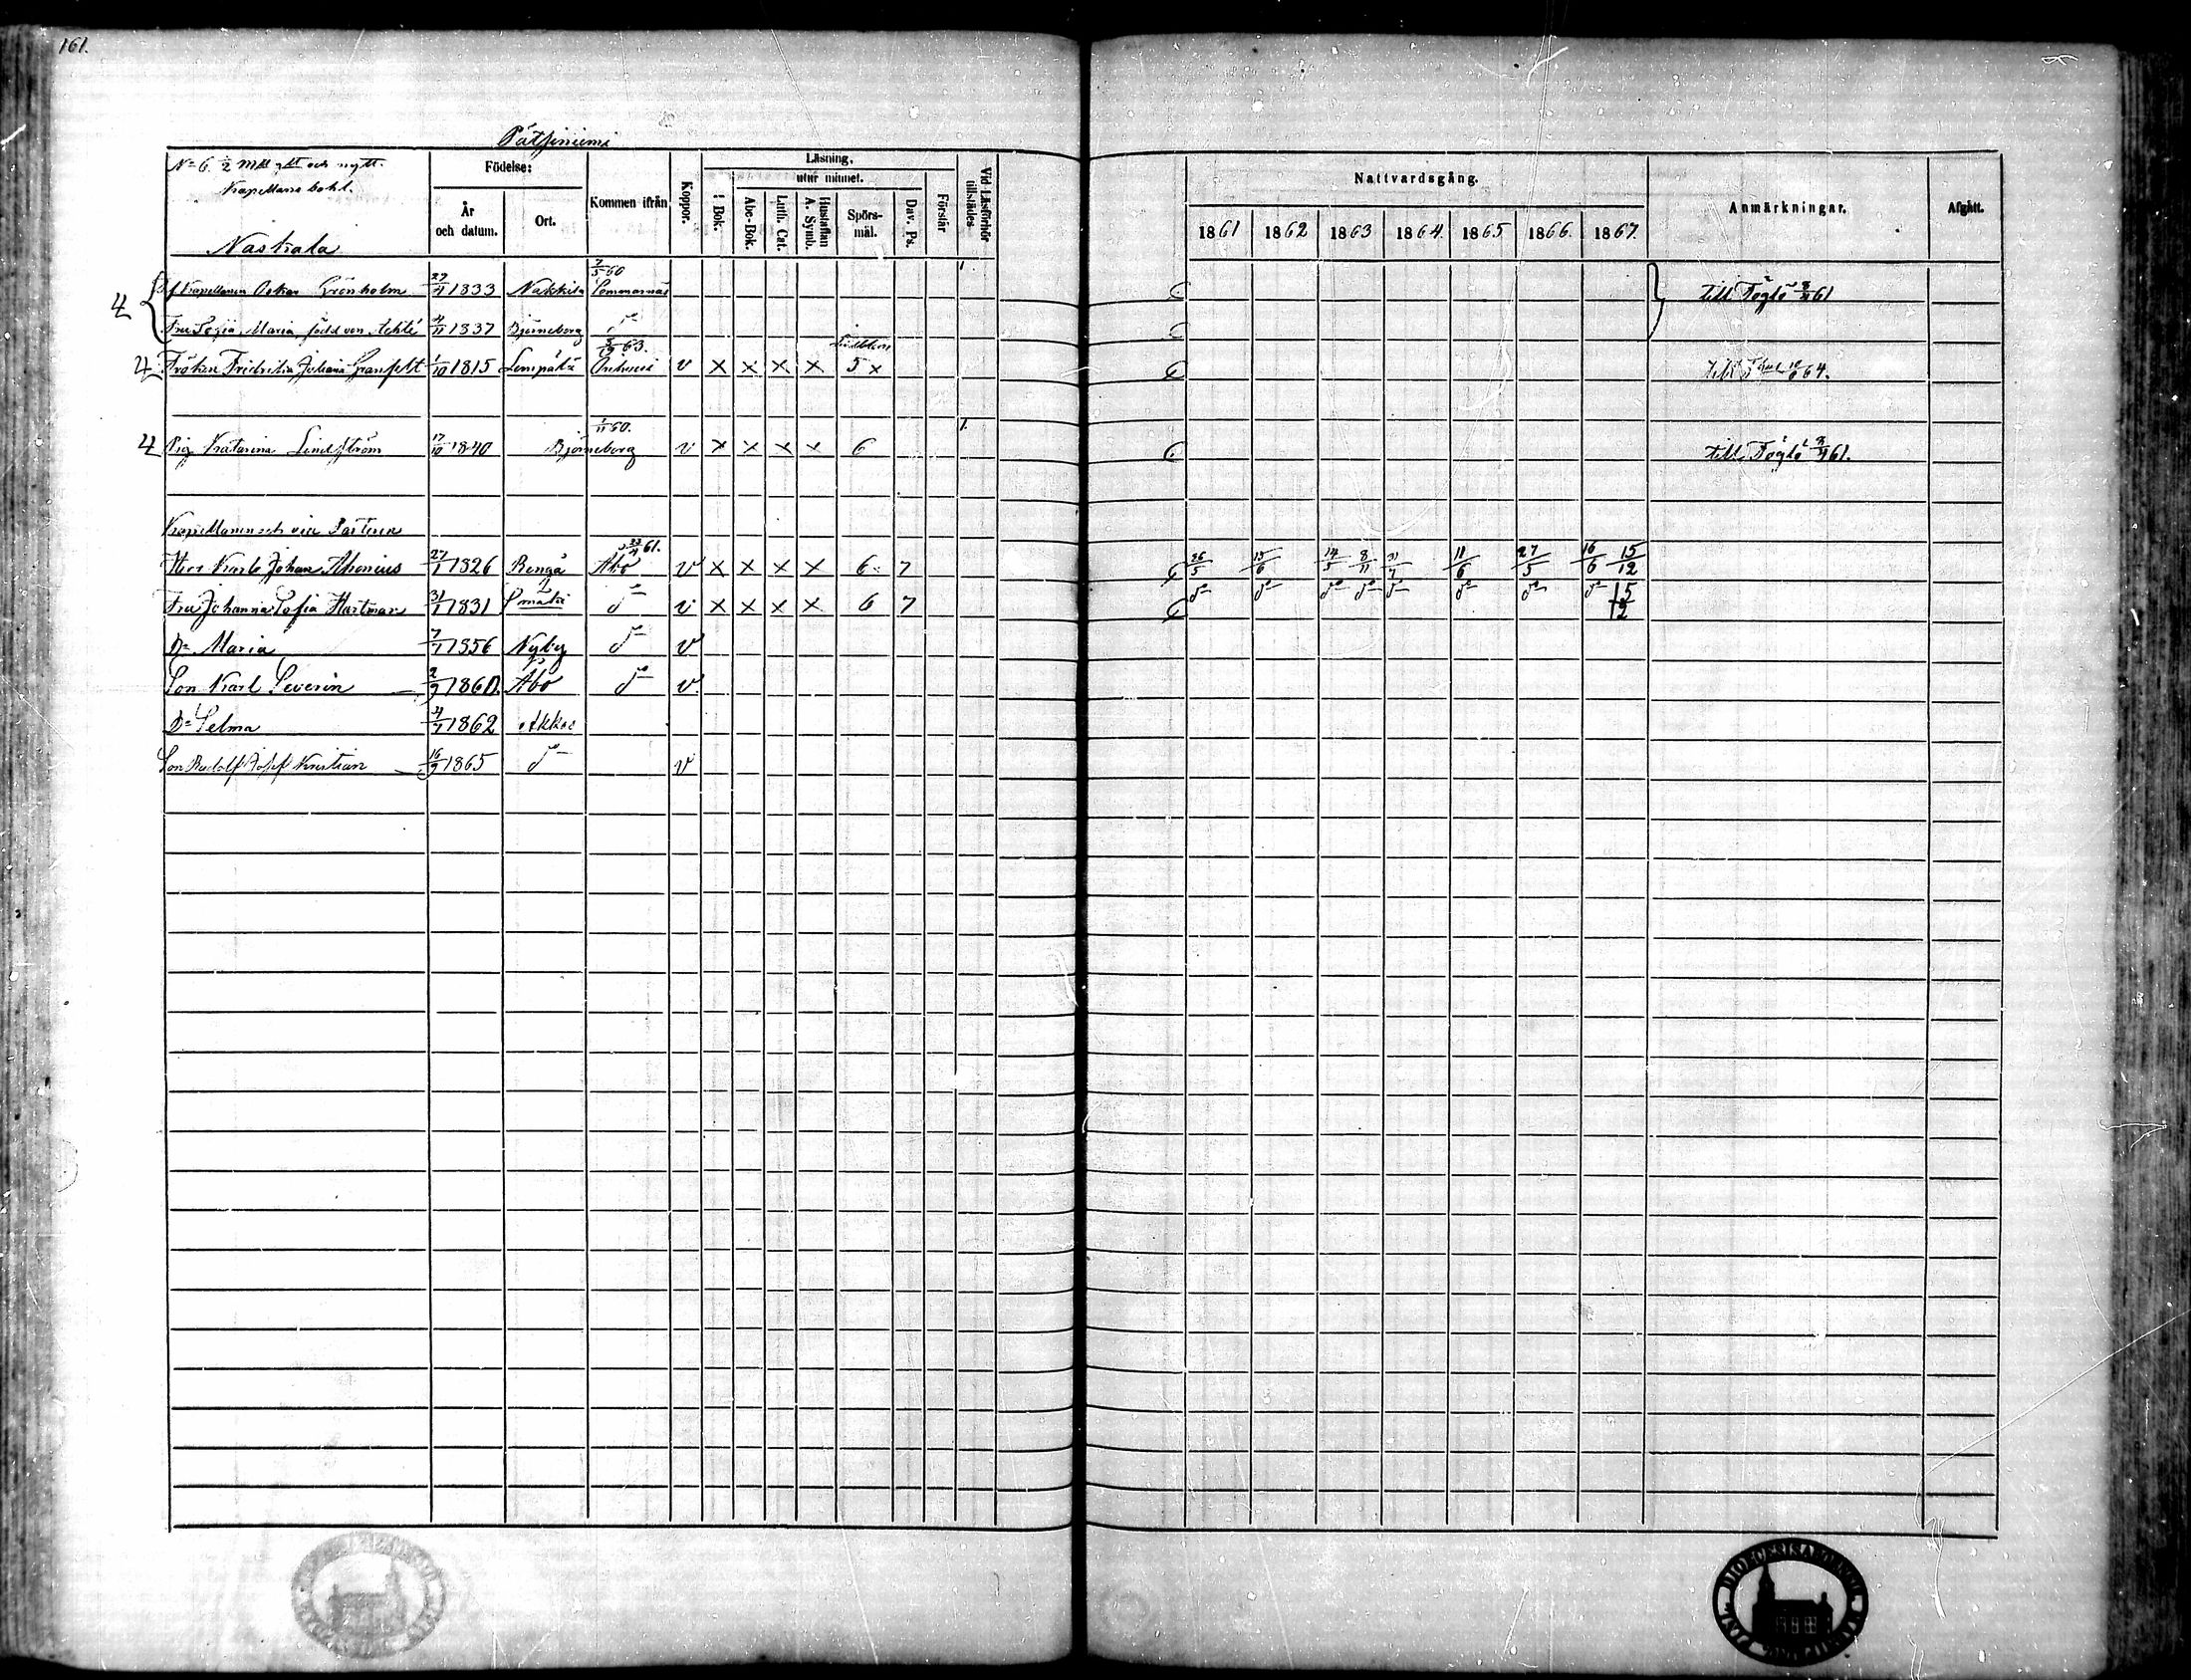 161.
Pätsiniemi
No 6. 1/2 Mtl gllt och nytt.
Kapellans bohl.
Nastkala
Födelse:
År och datum.
Ort.
Kommen ifrån
Koppor.
Läsning,
utur minnet.
I Bok.
Abc-Bok.
Luth. Cat.
Hustaflan A. Symb.
Spörs-mål.
Dav. Ps.
Förstår
Vid Läsförhör tillstädes
Nattvardsgång.
1861 1862 1863 1864. 1865 1866. 1867.
Anmärkningar.
Afgått.
4 Kapellanen Oskar Grönholm 27/4 1833 Nakkila 7/5 60 till Föglö 61
Fru Sofia Maria född von 1837 Björneborg do
4 Fröken Fredrika Juliana Granfelt 1/10 1815 Lempälä 63. v × × × × 5 × till 64.
4 Pig Katarina Lindström 17/10 1840 Björneborg 1/11 60. v × × × × 6 till Föglö 61.
Kapellanen och vice Pastorn
Herr Karl Johan Ahonius 27/1 1826 Bengå Åbo 61. v × × × × 6 7 26/5 15/6 14/5 8/11 11/6 27/5 16/6 15/12
Fru Johanna Sofia Hartman 31/1 1831 do v × × × × 6 7 do do do do do do do do 15/12
Dr Maria 7/1 1856 Nyby do v
Son Karl Severin 2/9 1860. Åbo do v.
Dr Selma 1862 Akkas
Son Rudolf Josef Kristian 16/9 1865 do v